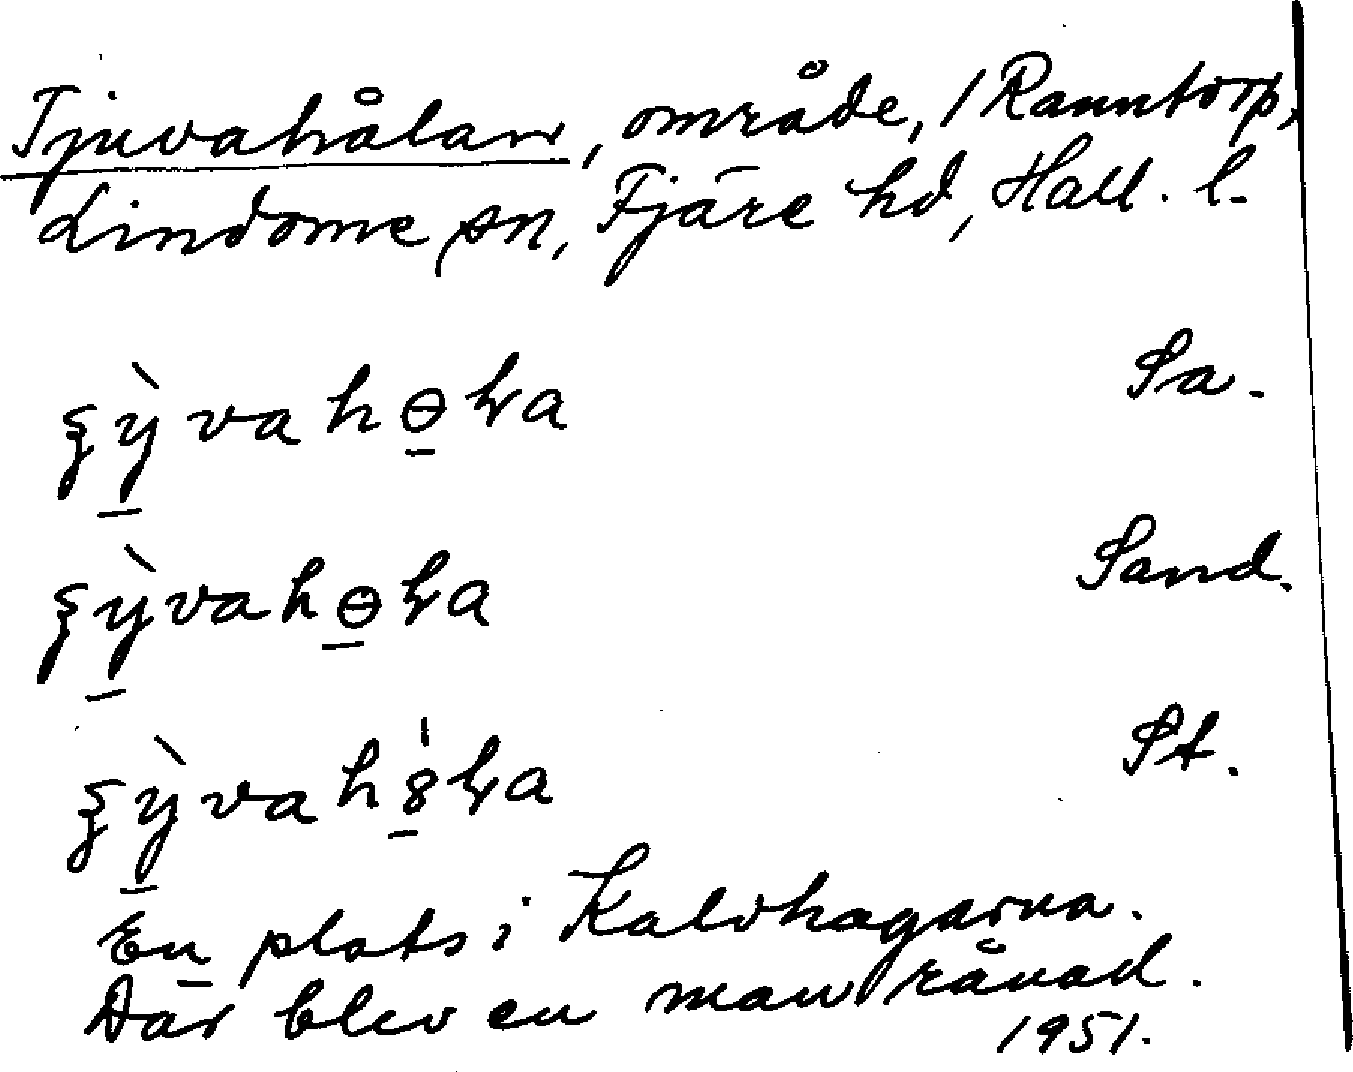 Tjuvahålan, område, / Ranntorp,
Lindome sn, Fjäre hd, Hall. l.
Sa.
Sand.
St.
En plats i Kalvhagarna.
Där blev en man rånad.
1951.